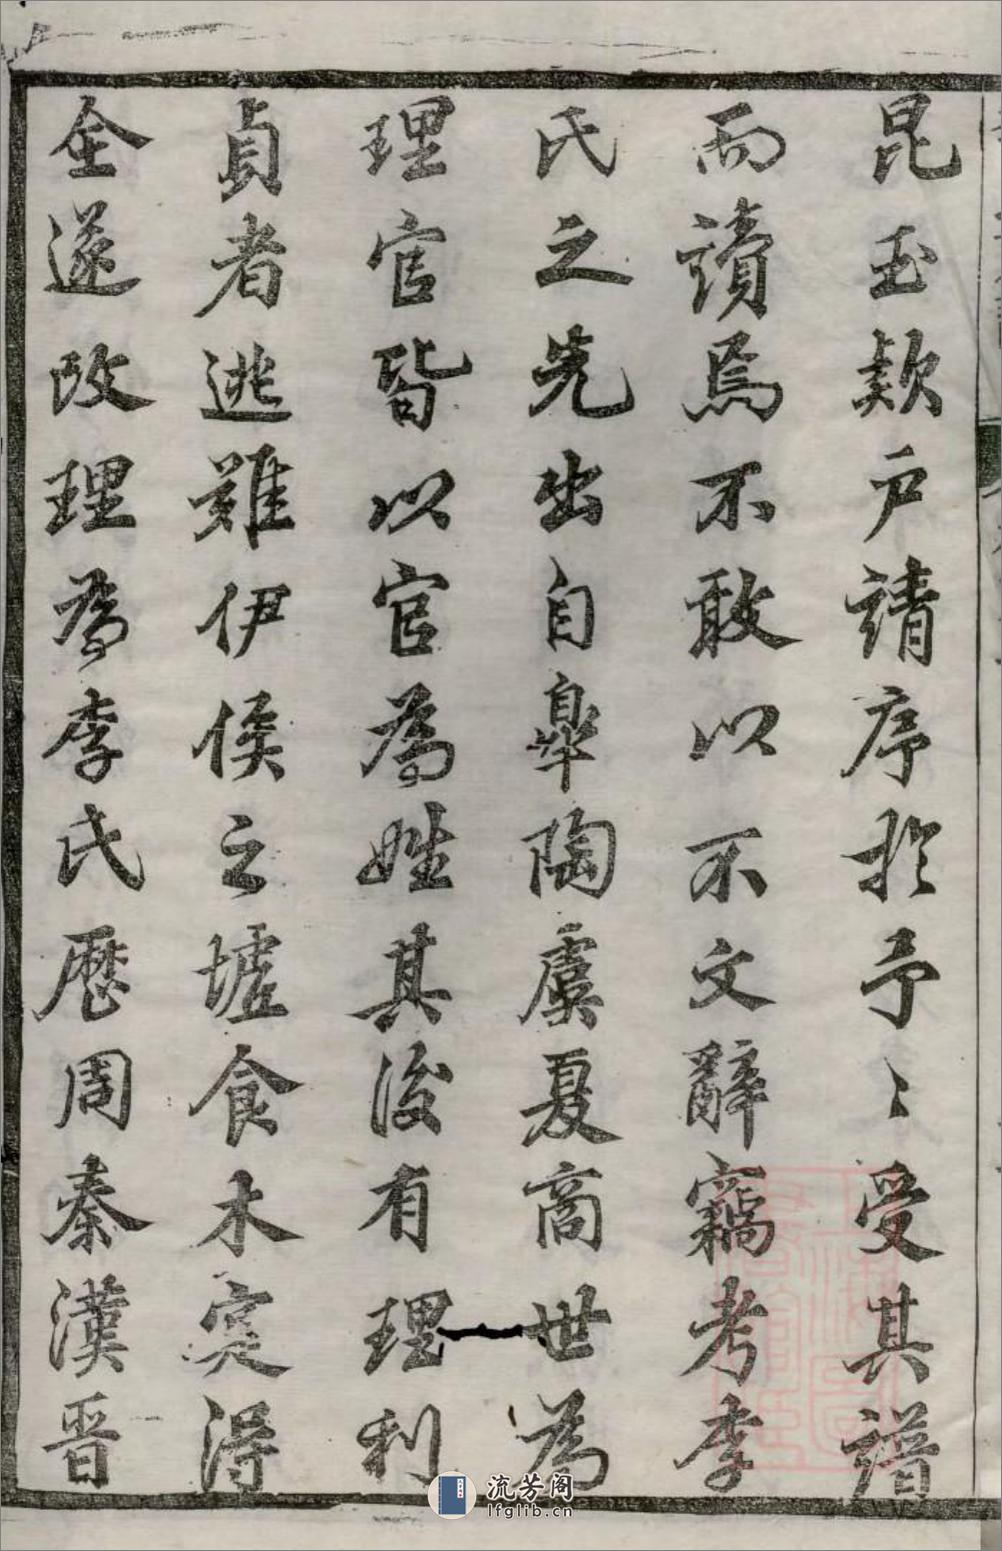 昆玉欵户請序於予〻受其譜
而讀焉不敢以不文辭竊考李
氏之先出自臯陶虞夏商世為
理官皆以官為姓其後有理利
貞者逃難伊侯之墟食木寔得
全遂改理為李氏歷周秦漢晋
流芳阁
lfglib.cn